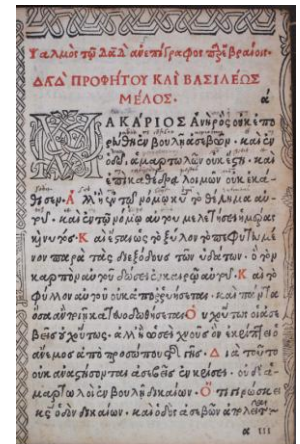 Ψαλμὸς τῷ Δαδ ἀνεπίγραφος παρ' ἑβραίοις.
ΔΑΔ ΠΡΟΦΗΤΟΥ ΚΑΙ ΒΑΣΙΛΕΩΣ
ΜΕΛΟΣ.
α
ΜΑΚΑΡΙΟΣ Ἀνὴρ ὃς οὐκ ἐπο
ρεύθη ἐν βουλῇ ἀσεβῶν. καὶ ἐν
ὁδῷ ἁμαρτωλῶν οὐκ ἔστη. καὶ
ἐπὶ καθέδρᾳ λοιμῶν οὐκ ἐκά-
θισεν. Ἀλλ' ἢ ἐν τῷ νόμῳ κυ τὸ θέλημα αὐ-
τοῦ. καὶ ἐν τῷ νόμῳ αὐτοῦ μελετήσει ἡμέρας
καὶ νυκτός. Καὶ ἔσται ὡς τὸ ξύλον τὸ πεφυτευμέ
νον παρὰ τὰς διεξόδους τῶν ὑδάτων. ὃ τὸν
καρπὸν αὐτοῦ δώσει ἐν καιρῷ αὐτοῦ. Καὶ τὸ
φύλλον αὐτοῦ οὐκ ἀπορρυήσεται. καὶ πάντα
ὅσα ἂν ποιῇ κατευοδωθήσεται. Οὐχ οὕτως οἱ ἀσε
βεῖς οὐχ οὕτως. ἀλλ' ἢ ὡσεὶ χνοῦς ὃν ἐκρίπτει ὁ
ἄνεμος ἀπὸ προσώπου τῆς γῆς. Διὰ τοῦτο
οὐκ ἀναστήσονται ἀσεβεῖς ἐν κρίσει. οὐδὲ ἁ-
μαρτωλοὶ ἐν βουλῇ δικαίων. Ὅτι γινώσκει
κς ὁδὸν δικαίων. καὶ ὁδὸς ἀσεβῶν ἀπολεῖται
α III